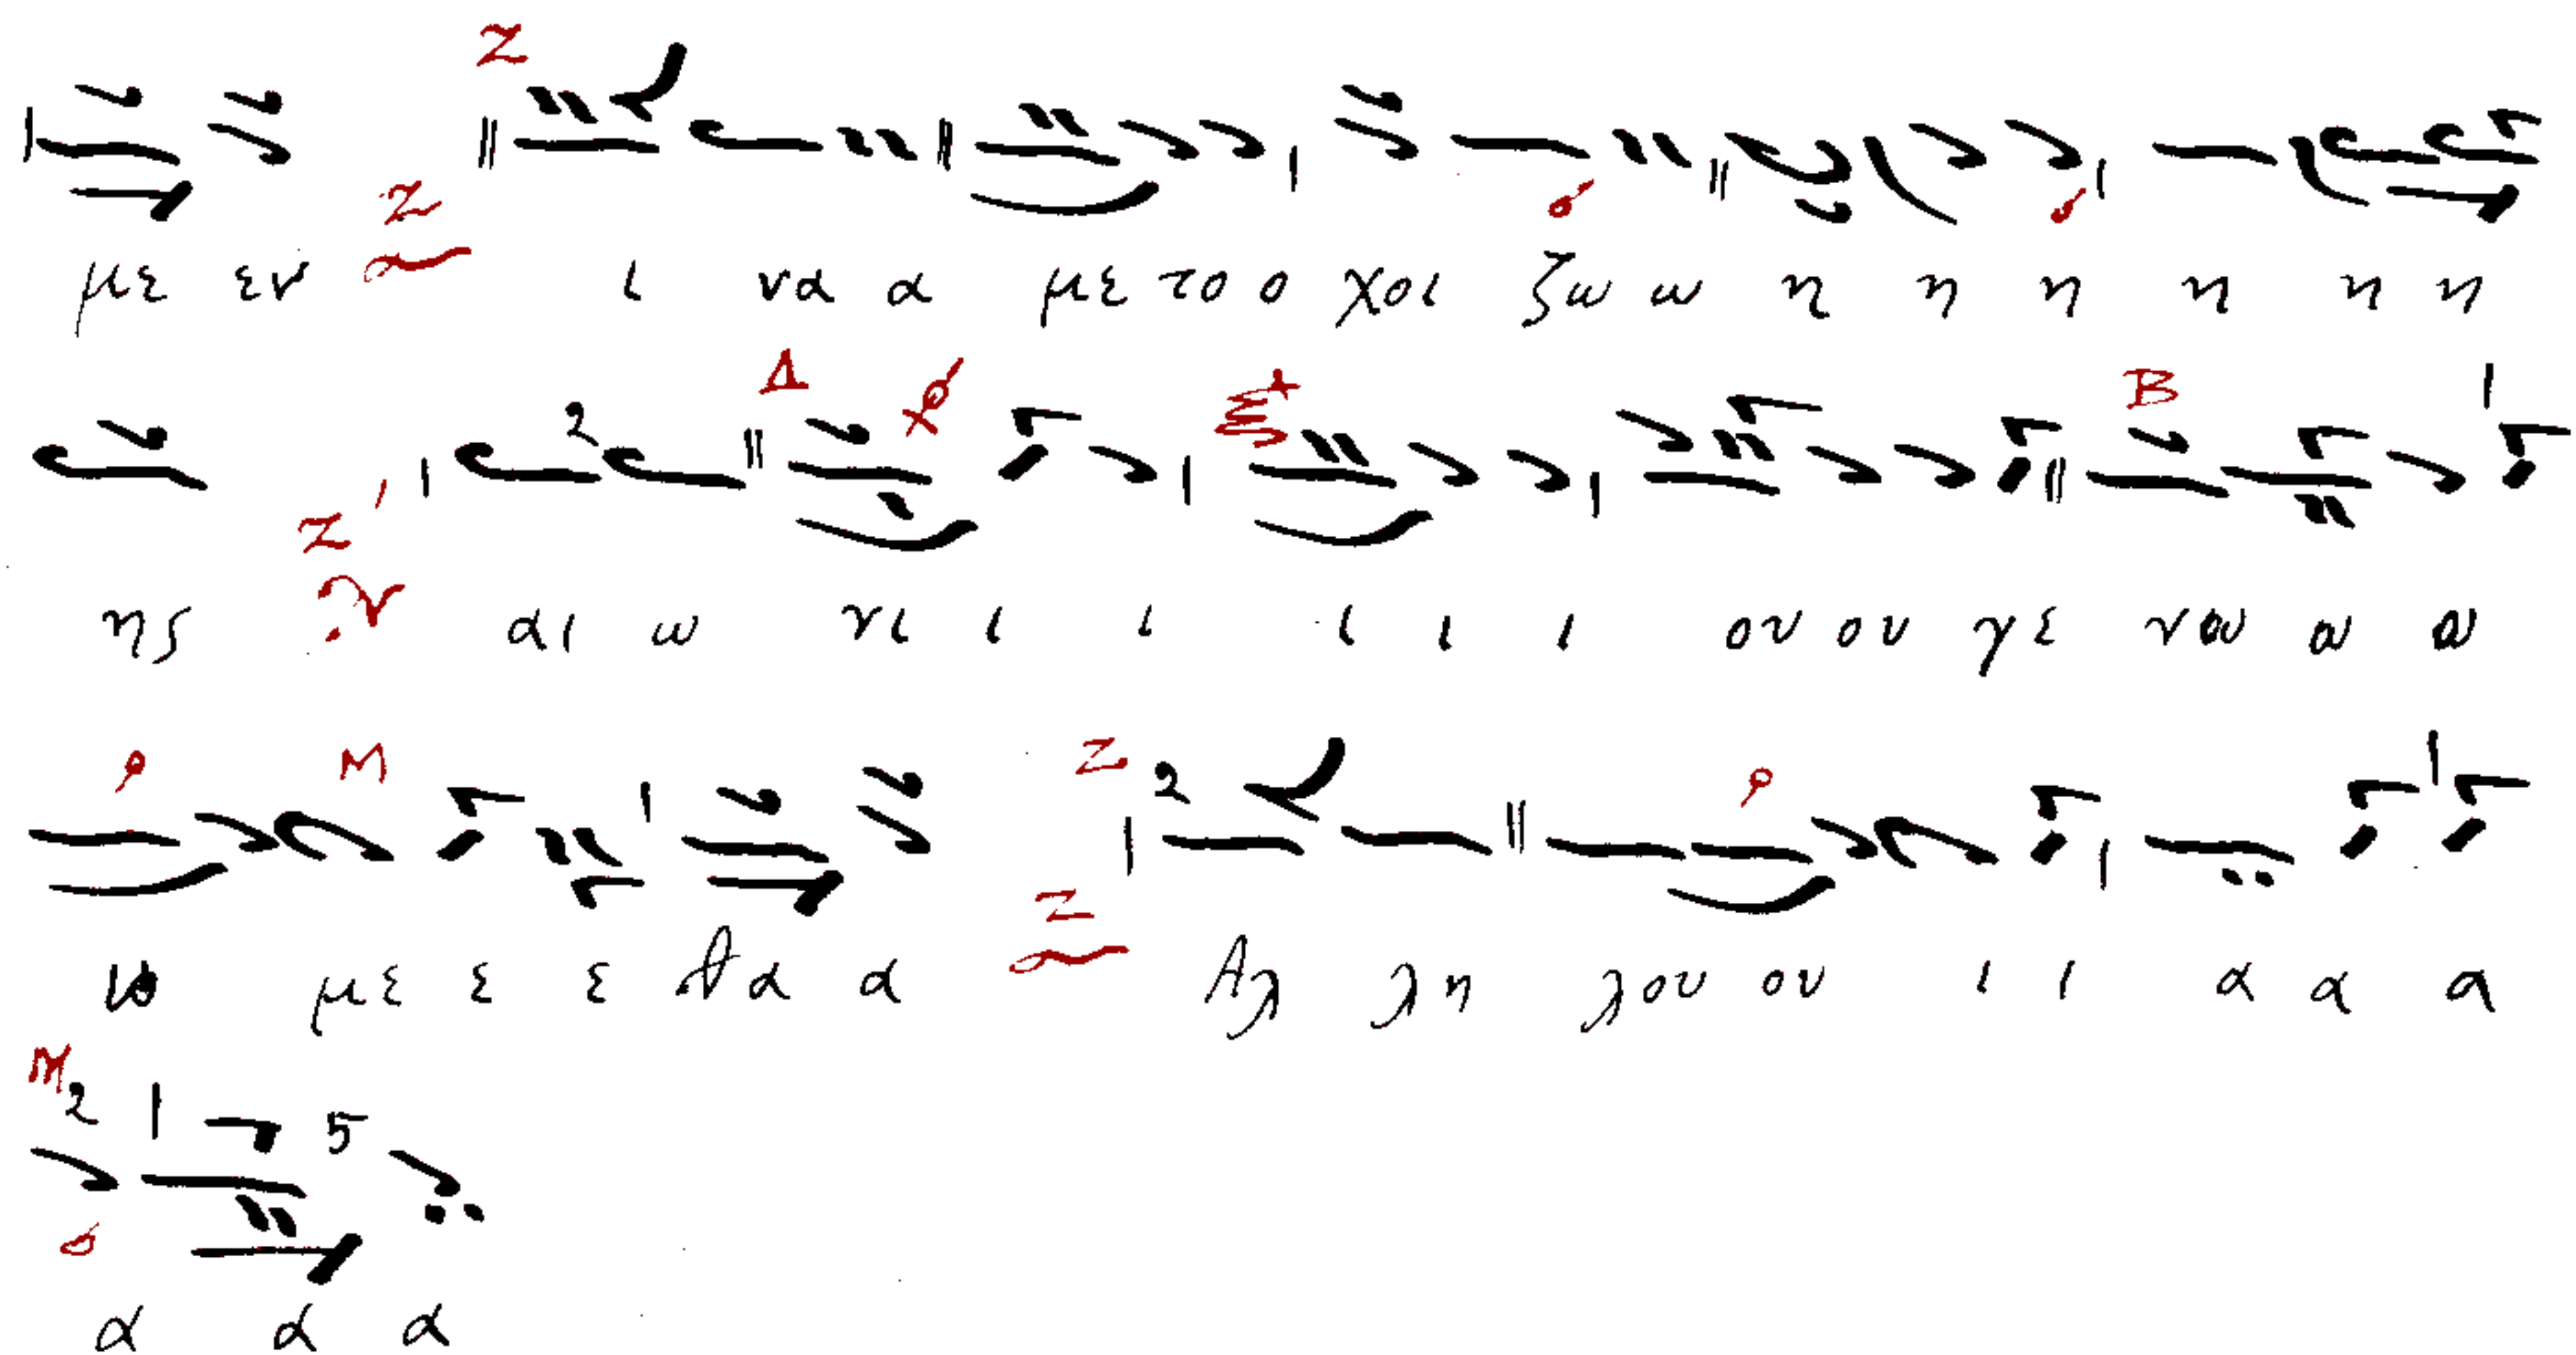 με εν ι να α με το ο χοι ζω ω η η η η η η
ης αι ω νι ι ι ι ι ι ου ου γε νω ω ω
ω με ε ε θα α Αλ λη λου ου ι ι α α α
α α α